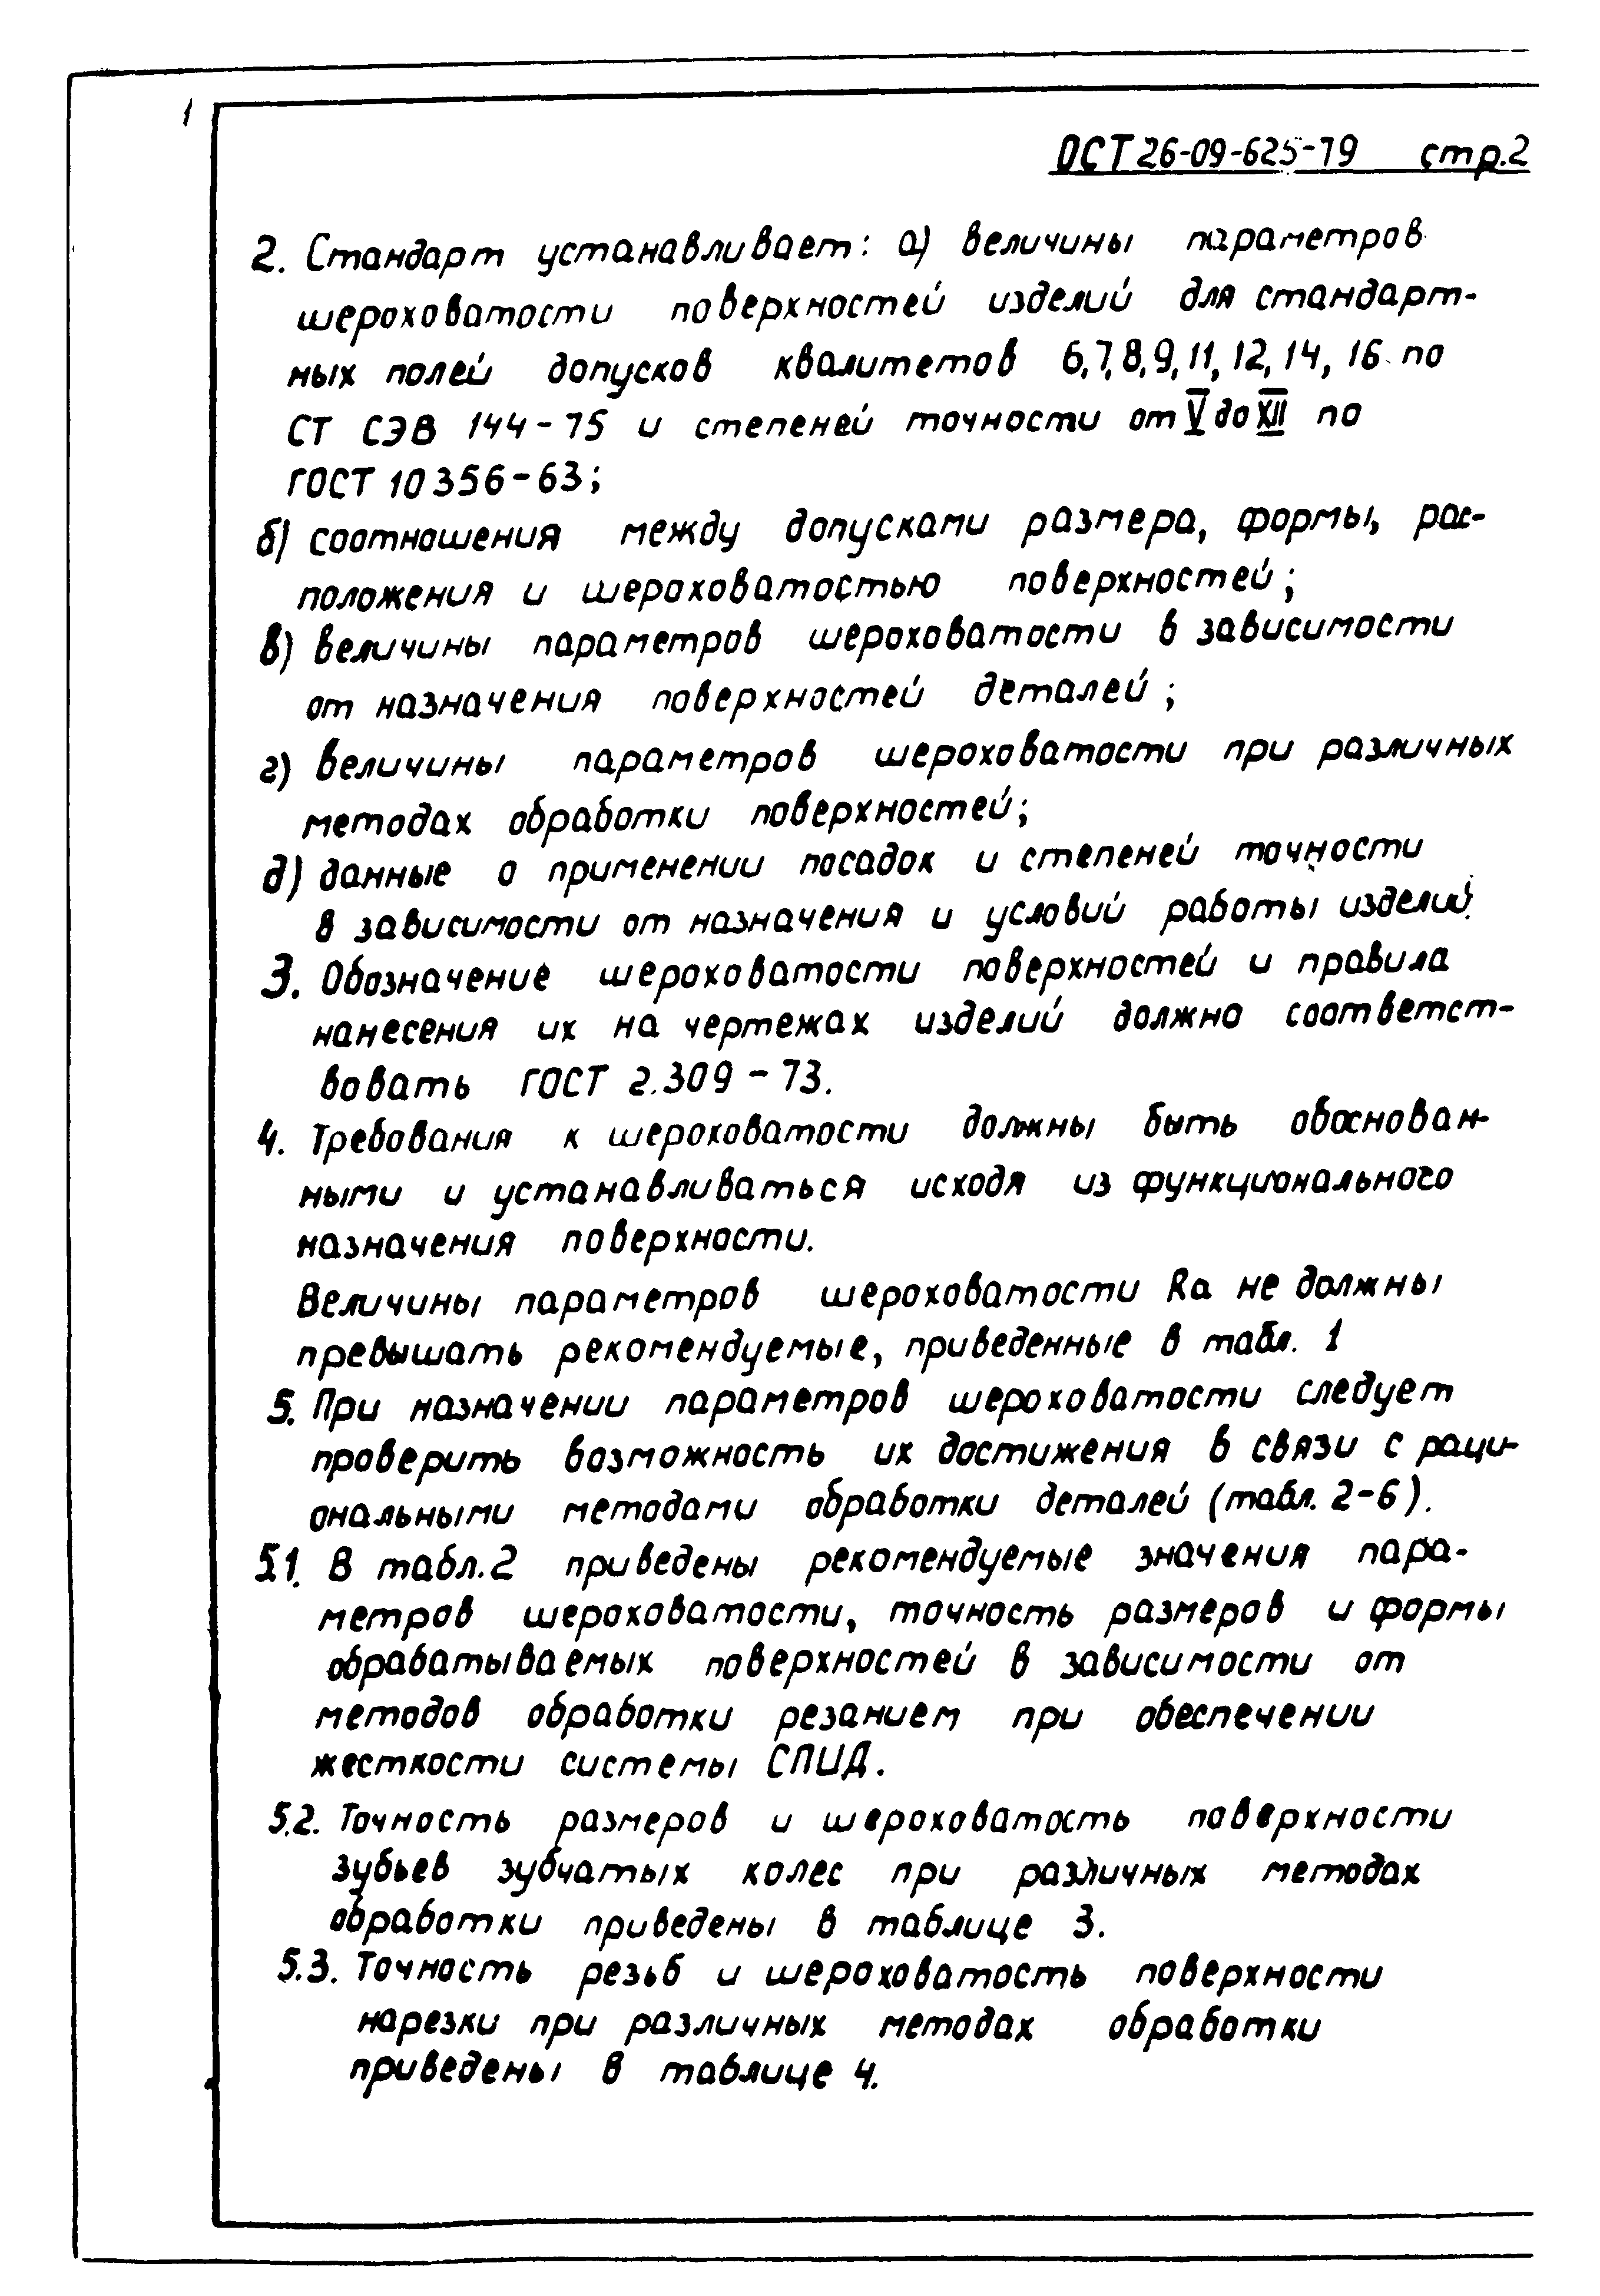 ОСТ 26-09-625-79 стр.2
2. Стандарт устанавливает: а) величины параметров
шероховатости поверхностей изделий для стандарт-
ных полей допусков квалитетов 6,7,8,9,11,12,14,16 по
СТ СЭВ 144-75 и степеней точности от V до XII по
ГОСТ 10356-63;
б) соотношения между допусками размера, формы, рас-
положения и шероховатостью поверхностей;
в) величины параметров шероховатости в зависимости
от назначения поверхностей деталей;
г) величины параметров шероховатости при различных
методах обработки поверхностей;
д) данные о применении посадок и степеней точности
в зависимости от назначения и условий работы изделий.
3. Обозначение шероховатости поверхностей и правила
нанесения их на чертежах изделий должно соответст-
вовать ГОСТ 2.309-73.
4. Требования к шероховатости должны быть обоснован-
ными и устанавливаться исходя из функционального
назначения поверхности.
Величины параметров шероховатости Ra не должны
превышать рекомендуемые, приведенные в табл. 1
5. При назначении параметров шероховатости следует
проверить возможность их достижения в связи с раци-
ональными методами обработки деталей (табл. 2-6).
5.1. В табл. 2 приведены рекомендуемые значения пара-
метров шероховатости, точность размеров и формы
обрабатываемых поверхностей в зависимости от
методов обработки резанием при обеспечении
жесткости системы СПИД.
5.2. Точность размеров и шероховатость поверхности
зубьев зубчатых колес при различных методах
обработки приведены в таблице 3.
5.3. Точность резьб и шероховатость поверхности
нарезки при различных методах обработки
приведены в таблице 4.